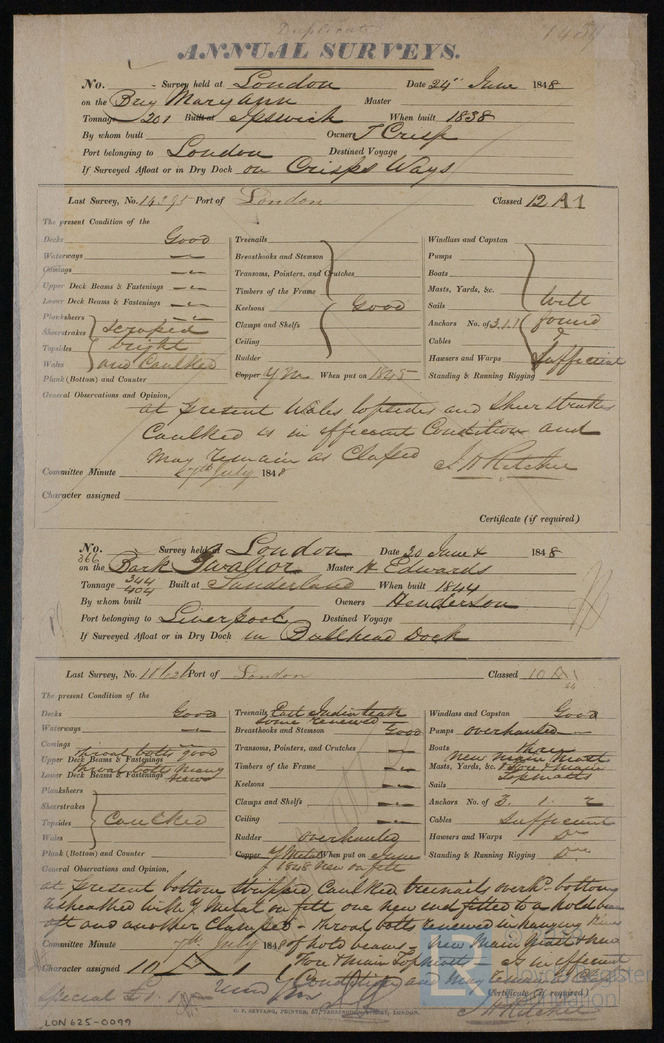 Duplicate
ANNUAL SURVEYS.
No. Survey held at London Date 24th June 1848
on the Brig Mary Ann Master
Tonnage 201 Built at Ipswich When built 1838
By whom built Owners T Crisp
Port belonging to London Destined Voyage
If Surveyed Afloat or in Dry Dock on Crisps Ways
Last Survey, No. 14395 Port of London Classed 12 A1
The present Condition of the
Decks Good
Waterways
Comings
Upper Deck Beams & Fastenings
Lower Deck Beams & Fastenings
Planksheers
Sheerstrakes
Topsides
Wales
scraped
bright
and Caulked
Plank (Bottom) and Counter
Treenails
Breasthooks and Stemson
Transoms, Pointers, and Crutches
Timbers of the Frame
Keelsons Good
Clamps and Shelfs
Ceiling
Rudder
Copper Y M When put on 1845
Windlass and Capstan
Pumps
Boats
Masts, Yards, &c.
Sails
Anchors No. of 3.1.1
Cables
Hawsers and Warps
Standing & Running Rigging
Well
found
&
Sufficient
General Observations and Opinion,
at present Wales topsides and Sheerstrakes
Caulked is in efficient Condition and
may remain as Classed J H Ritchie
Committee Minute 7th July 1848
Character assigned
Certificate (if required)
No. 366 Survey held at London Date 20 June & 1848
on the Bark Gwalior Master H Edwards
Tonnage 344 404 Built at Sunderland When built 1844
By whom built Owners Henderson
Port belonging to Liverpool Destined Voyage
If Surveyed Afloat or in Dry Dock in Bullhead Dock
Last Survey, No. Port of London Classed 10 A1
The present Condition of the
Decks Good
Waterways
Comings
Upper Deck Beams & Fastenings throat bolts good
Lower Deck Beams & Fastenings throat bolts many new
Planksheers
Sheerstrakes
Topsides
Wales
Caulked
Plank (Bottom) and Counter
Treenails East India teak some renewed
Breasthooks and Stemson Good
Transoms, Pointers, and Crutches
Timbers of the Frame
Keelsons
Clamps and Shelfs
Ceiling
Rudder overhauled
Copper Y Metal When put on June
1848 new on felt
Windlass and Capstan Good
Pumps overhauled
Boats Three
Masts, Yards, &c. New Main Mast Fore & main Topmasts
Sails
Anchors No. of 3. 1. 2
Cables Sufficient
Hawsers and Warps Do
Standing & Running Rigging Do
General Observations and Opinion,
at present bottom stripped Caulked treenails overhd bottom
resheathed with Y Metal on felt one new end fitted to a hold beam
aft and another Clamped - throat bolts renewed in hanging Knees
of hold beams - New Main Mast & new
Fore & Main Topmasts - Is in efficient
Condition and may remain as Classed
Committee Minute 7th July 1848
Character assigned 10 A 1
Certificate (if required)
J H Ritchie
Special £1.
LON625-0099
Lloyd's Register
Foundation